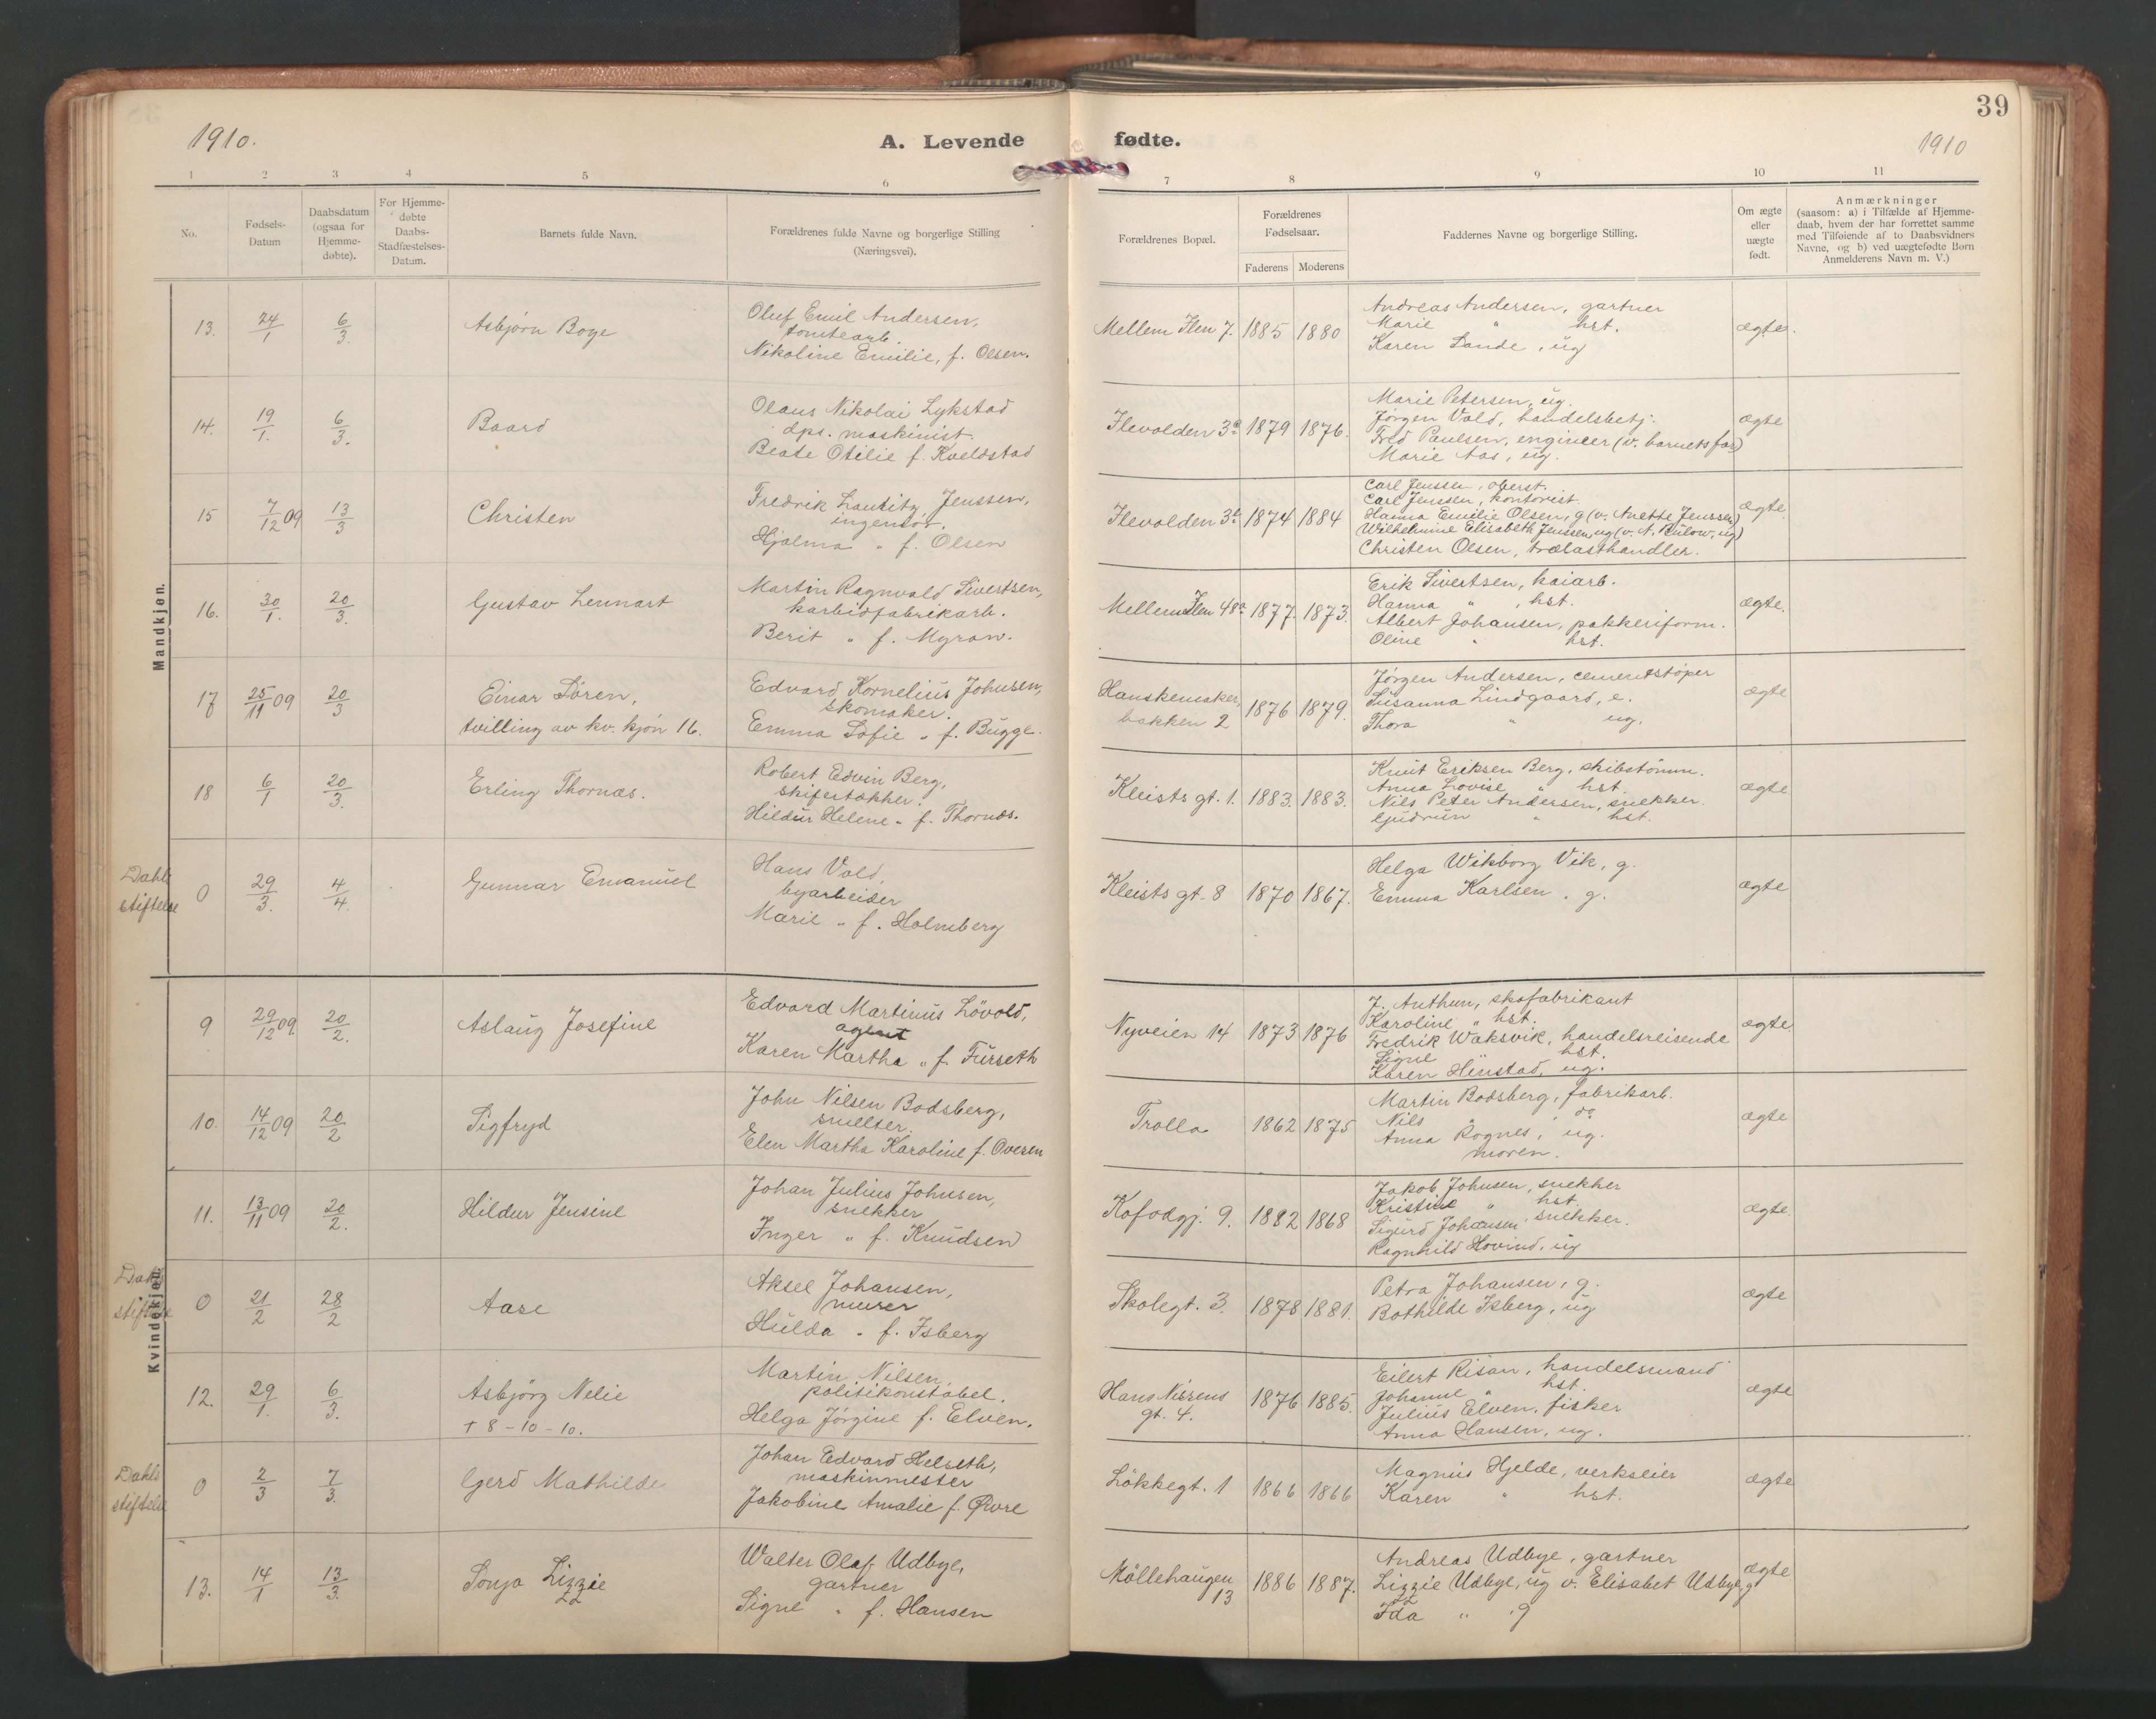 39
1910.
A. Levende fødte.
1910
1 2 3 4 5 6 7 8 9 10 11
No.
Fødsels-
Datum
Daabsdatum
(ogsaa for
Hjemme-
døbte).
For Hjemme-
døbte
Daabs-
Stadfæstelses-
Datum.
Barnets fulde Navn.
Forældrenes fulde Navne og borgerlige Stilling
(Næringsvei).
Forældrenes Bopæl.
Forældrenes
Fødselsaar.
Faderens Moderens
Faddernes Navne og borgerlige Stilling.
Om ægte
eller
uægte
født.
Anmærkninger
(saasom: a) i Tilfælde af Hjemme-
daab, hvem der har forrettet samme
med Tilføiende af to Daabsvidners
Navne, og b) ved uægtefødte Børn
Anmelderens Navn m. V.)
Mandkjøn.
13. 24/1 6/3 Asbjørn Boye
Oluf Emil Andersen,
tomtearb.
Nikoline Emilie, f. Olsen.
Mellem Ilen 7. 1885 1880
Andreas Andersen, gartner
Marie " hst.
Karen Sande, ug
ægte.
14. 19/1. 6/3. Baard
Olaus Nikolai Lykstad
dps. maskinist.
Beate Otilie f. Kveldstad
Ilevolden 3a 1879 1876.
Marie Petersen, ug.
Jørgen Vold, handelsbetj.
Fred Paulsen, engineer (v. barnets far)
Marie Aas, ug.
ægte
15 7/12 09 13/3 Christen
Fredrik Lauritz Jenssen,
ingeniør.
Hjalma " f. Olsen
Ilevolden 3b 1874 1884
Carl Jenssen, oberst.
Carl Jenssen, kontorist.
Hanna Emilie Olsen, g (v. Anette Jenssen)
Wilhelmine Elisabeth Jenssen, ug (v. A. Bülow, ug)
Christen Olsen, trælasthandler.
ægte.
16. 30/1. 20/3. Gustav Lennart
Martin Ragnvald Sivertsen,
karbidfabrikarb.
Berit " f. Myran.
Mellem Ilen 48a 1877. 1873.
Erik Sivertsen, kaiarb.
Hanna " , hst.
Albert Johansen, pakkeriform.
Oline " hst.
ægte.
17 25/11 09 20/3 Einar Søren,
tvilling av kv. kjøn 16.
Edvard Kornelius Johnsen,
skomaker.
Emma Sofie " f. Bugge.
Hanskemaker,
bakken 2 1876 1879.
Jørgen Andersen, cementstøper
Susanna Lindgaard, e.
Thora " ug.
ægte
18 6/1 20/3. Erling Thornæs.
Robert Edvin Berg,
skifertækker.
Hildur Helene " f. Thornæs.
Kleists gt. 1. 1883. 1883.
Knut Eriksen Berg, skibstømm.
Anna Lovise " hst.
Nils Peter Andersen, snekker.
Gudrun " hst.
ægte
Dahls
stiftelse
0 29/3. 4/4. Gunnar Emanuel
Hans Vold,
byarbeider
Marie " f. Holmberg
Kleists gt. 8 1870 1867.
Helga Wikborg Vik, g.
Emma Karlsen, g.
ægte
Kvindekjøn.
9 29/12 09 20/2. Aslaug Josefine
Edvard Martinus Løvold,
agent
Karen Martha " f. Furseth
Nyveien 14 1873 1876
J. Anthun, skofabrikant
Karoline " hst.
Fredrik Waksvik, handelsreisende
Signe hst.
Karen Hinstad, ug.
ægte.
10. 14/12 09 20/2 Sigfryd
John Nilsen Bodsberg,
smelter.
Elen Martha Karoline f. Ovesen
Trolla 1862 1875
Martin Bodsberg, fabrikarb.
Nils " , do
Anna Rognes, ug.
moren.
ægte
11. 13/11 09 20/2. Hildur Jensine
Johan Julius Johnsen,
snekker
Inger " f. Knudsen
Kofodgj. 9. 1882 1868
Jakob Johnsen, snekker
Kristine " hst.
Sigurd Johansen snekker.
Ragnhild Hovind, ug
ægte.
Dahls
stiftelse
0 21/2 28/2 Aase
Aksel Johansen,
murer
Hulda " f. Isberg
Skolegt. 3. 1878 1881.
Petra Johansen, g.
Bothilde Isberg, ug
ægte
12. 29/1. 6/3. Asbjørg Nelie
† 8-10-10.
Martin Nilsen,
politikonstabel.
Helga Jørgine f. Elven.
Hans Nissens
gt. 4. 1876 1885.
Eilert Risan, handelsmand
Johanne " hst.
Julius Elven, fisker
Anna Hansen, ug.
ægte
Dahls
stiftelse
0 2/3 7/3. Gerd Mathilde
Johan Edvard Helseth,
maskinmester
Jakobine Amalie f. Øvre
Løkkegt. 1 1866 1866
Magnus Hjelde, verkseier
Karen " hst.
ægte
13. 14/1 13/3. Sonja Lizzie
Walter Olaf Udbye,
gartner
Signe " f. Hansen
Møllehaugen
13 1886 1887.
Andreas Udbye, gartner
Lizzie Udbye, ug v. Elisabet Udbye, g
Ida " , g
ægte